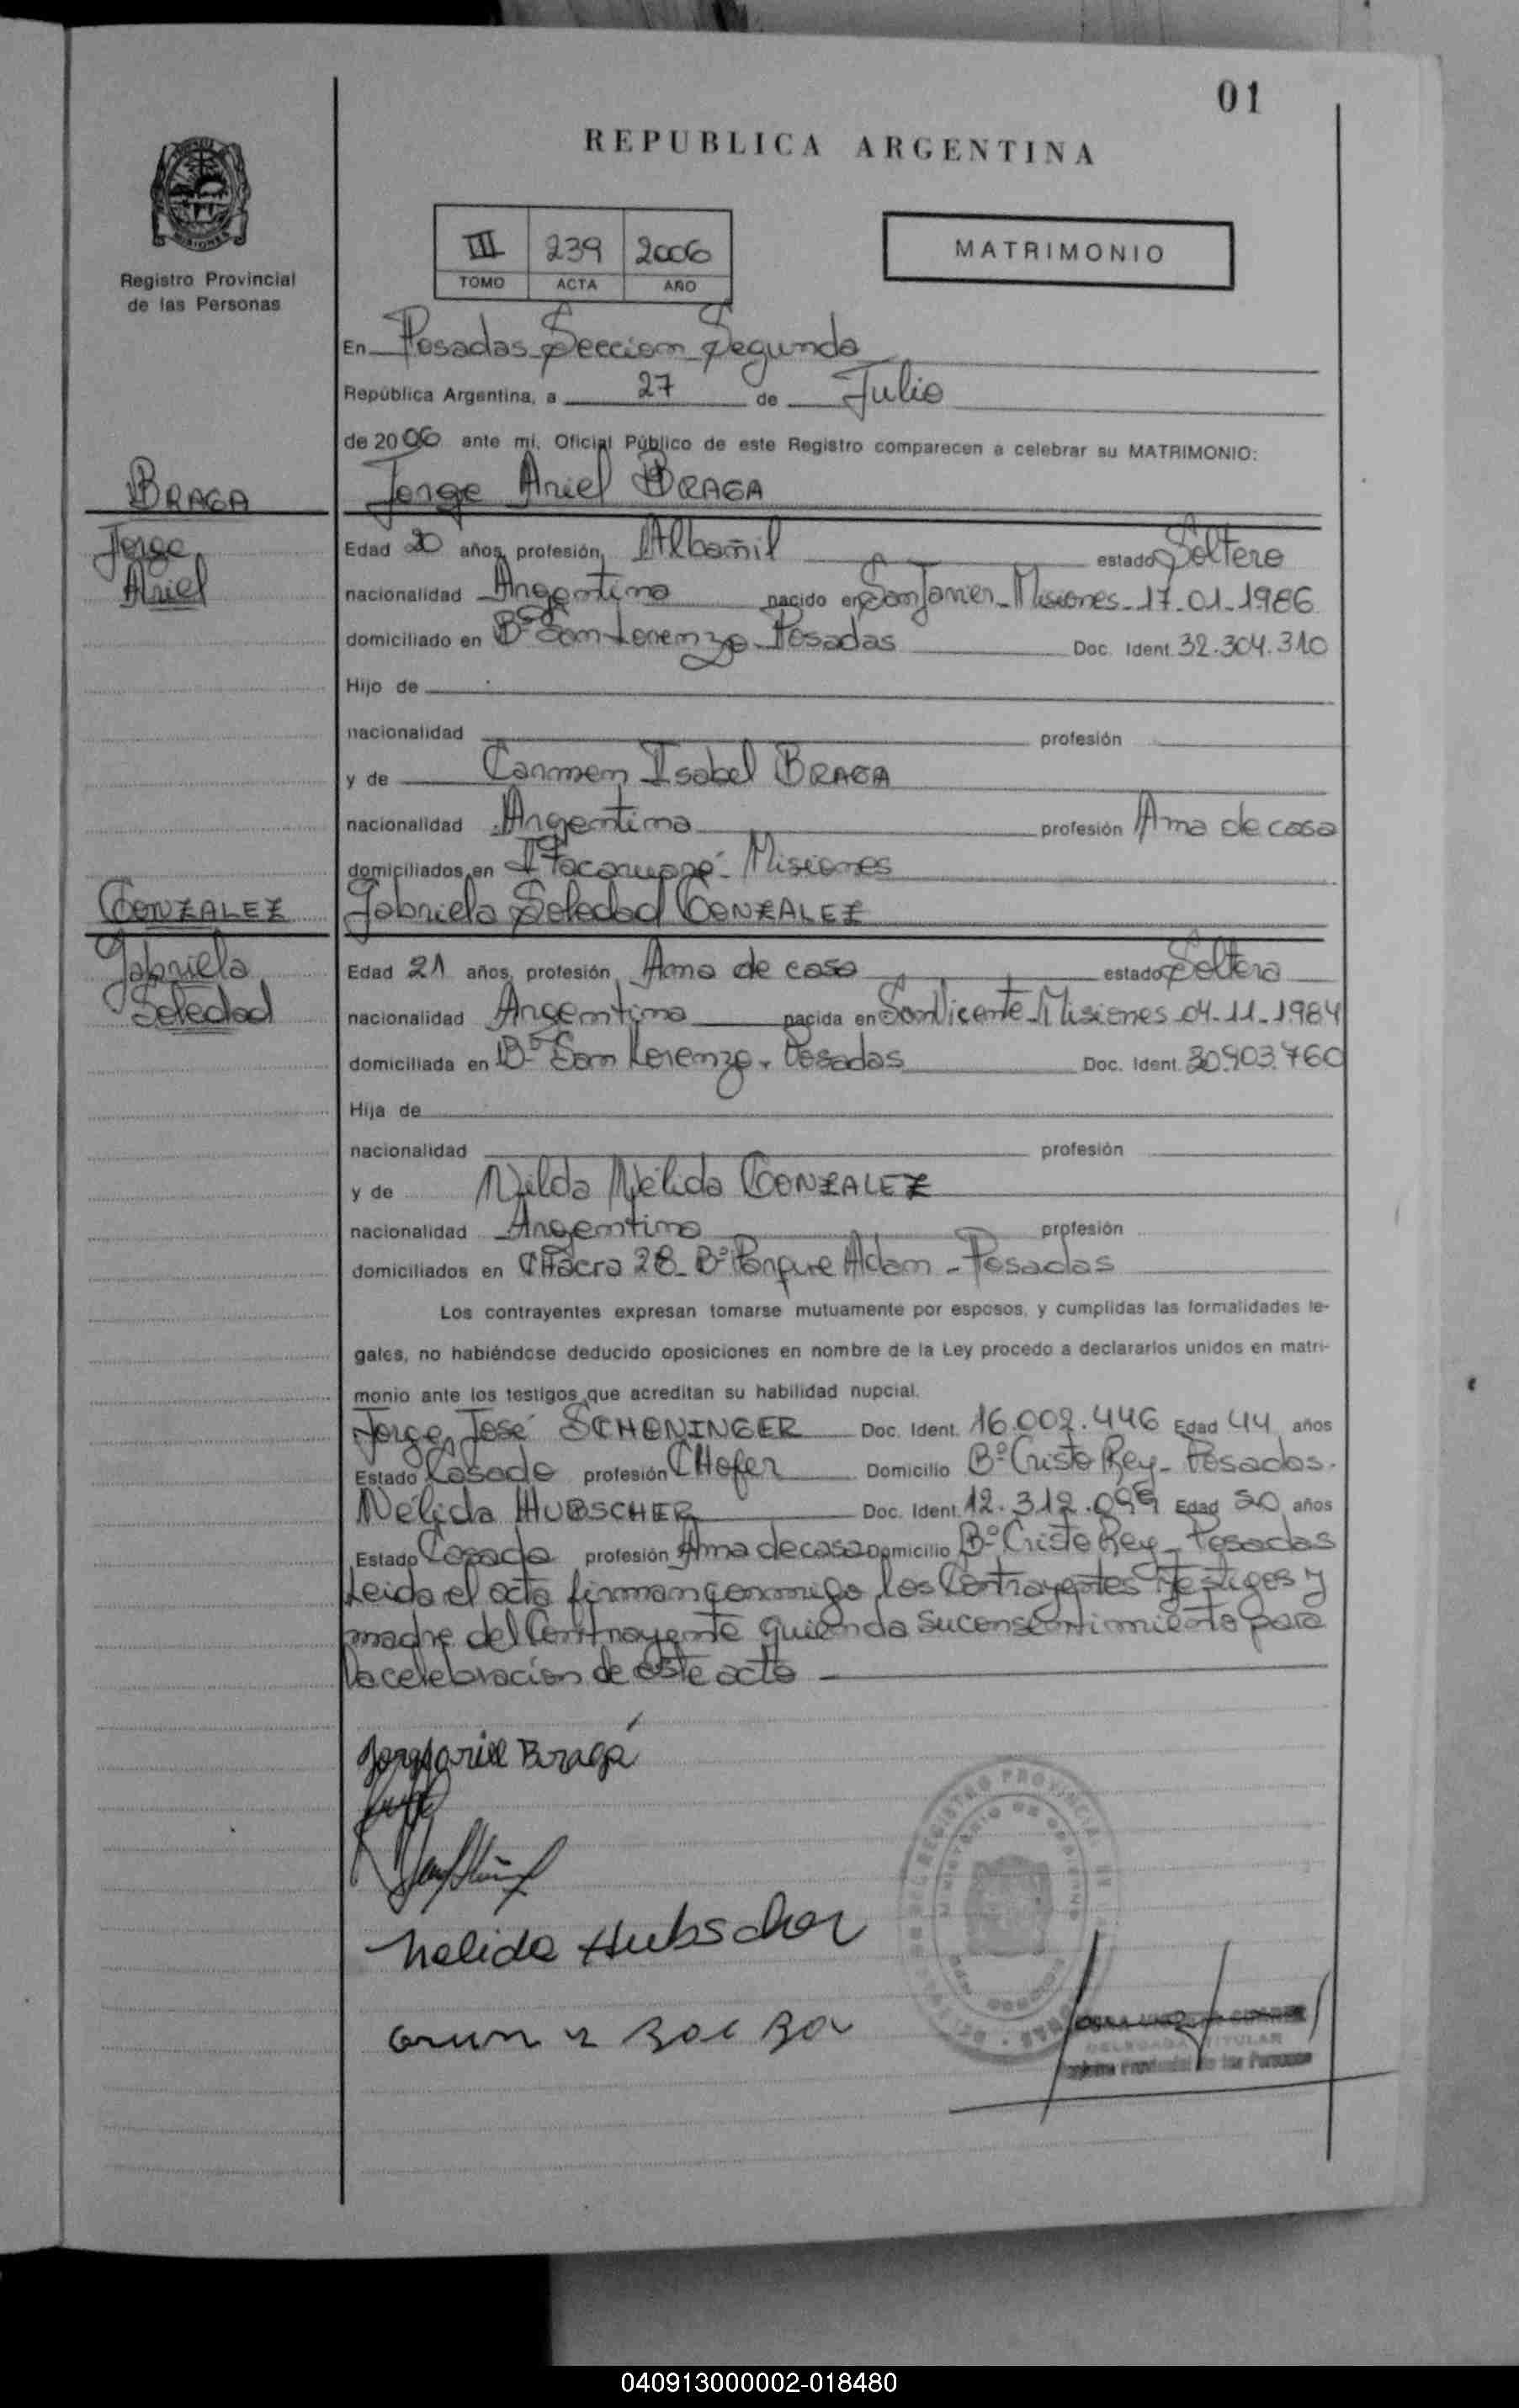 01
REPUBLICA ARGENTINA
MISIONES
Registro Provincial
de las Personas
III 239 2006
TOMO ACTA AÑO
MATRIMONIO
En Posadas Seccion Segunda
República Argentina, a 27 de Julio
de 2006 ante mí, Oficial Público de este Registro comparecen a celebrar su MATRIMONIO:
BRAGA
Jorge Ariel BRAGA
Jorge
Ariel
Edad 20 años, profesión Albañil estado Soltero
nacionalidad Argentina nacido en San Javier - Misiones - 17-01-1986
domiciliado en Bº San Lorenzo - Posadas Doc. Ident. 32.304.310
Hijo de
nacionalidad profesión
y de Carmen Isabel BRAGA
nacionalidad Argentina profesión Ama de casa
domiciliados en Itacaruaré - Misiones
GONZALEZ
Gabriela Soledad GONZALEZ
Gabriela
Soledad
Edad 21 años, profesión Ama de casa estado Soltera
nacionalidad Argentina nacida en San Vicente - Misiones 04-11-1984
domiciliada en Bº San Lorenzo - Posadas Doc. Ident. 30.903.760
Hija de
nacionalidad profesión
y de Nilda Nélida GONZALEZ
nacionalidad Argentina profesión
domiciliados en CHacra 28 - Bº Parque Adam - Posadas
Los contrayentes expresan tomarse mutuamente por esposos, y cumplidas las formalidades le-
gales, no habiéndose deducido oposiciones en nombre de la Ley procedo a declararlos unidos en matri-
monio ante los testigos que acreditan su habilidad nupcial.
Jorge José SCHONINGER Doc. Ident. 16.002.446 Edad 44 años
Estado Casado profesión CHofer Domicilio Bº Cristo Rey - Posadas.
Nélida HUBSCHER Doc. Ident. 12.312.099 Edad 50 años
Estado Casada profesión Ama de casa Domicilio Bº Cristo Rey - Posadas
Leida el acta firman conmigo los Contrayentes Testigos y
madre del Contrayente quien da su consentimiento para
la celebracion de este acto
Jorge Ariel Braga
Nelida Hubscher
DELEGADA TITULAR
Registro Provincial de las Personas
040913000002-018480